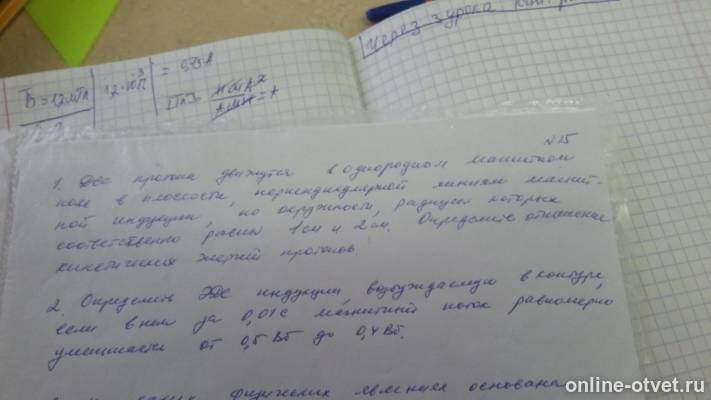 Через 3 урока
B = 12 мТл | 12·10⁻³ | =
N15
1. Два протона движутся в однородном магнитном
поле в плоскости, перпендикулярной линиям магнит-
ной индукции, по окружности, радиусы которых
соответственно равны 1 см и 2 см. Определите отношение
кинетических энергий протонов.
2. Определить ЭДС индукции, возбуждаемую в контуре,
если в нем за 0,01 с магнитный поток равномерно
уменьшается от 0,5 Вб до 0,4 Вб.
физических явлениях основана
online-otvet.ru